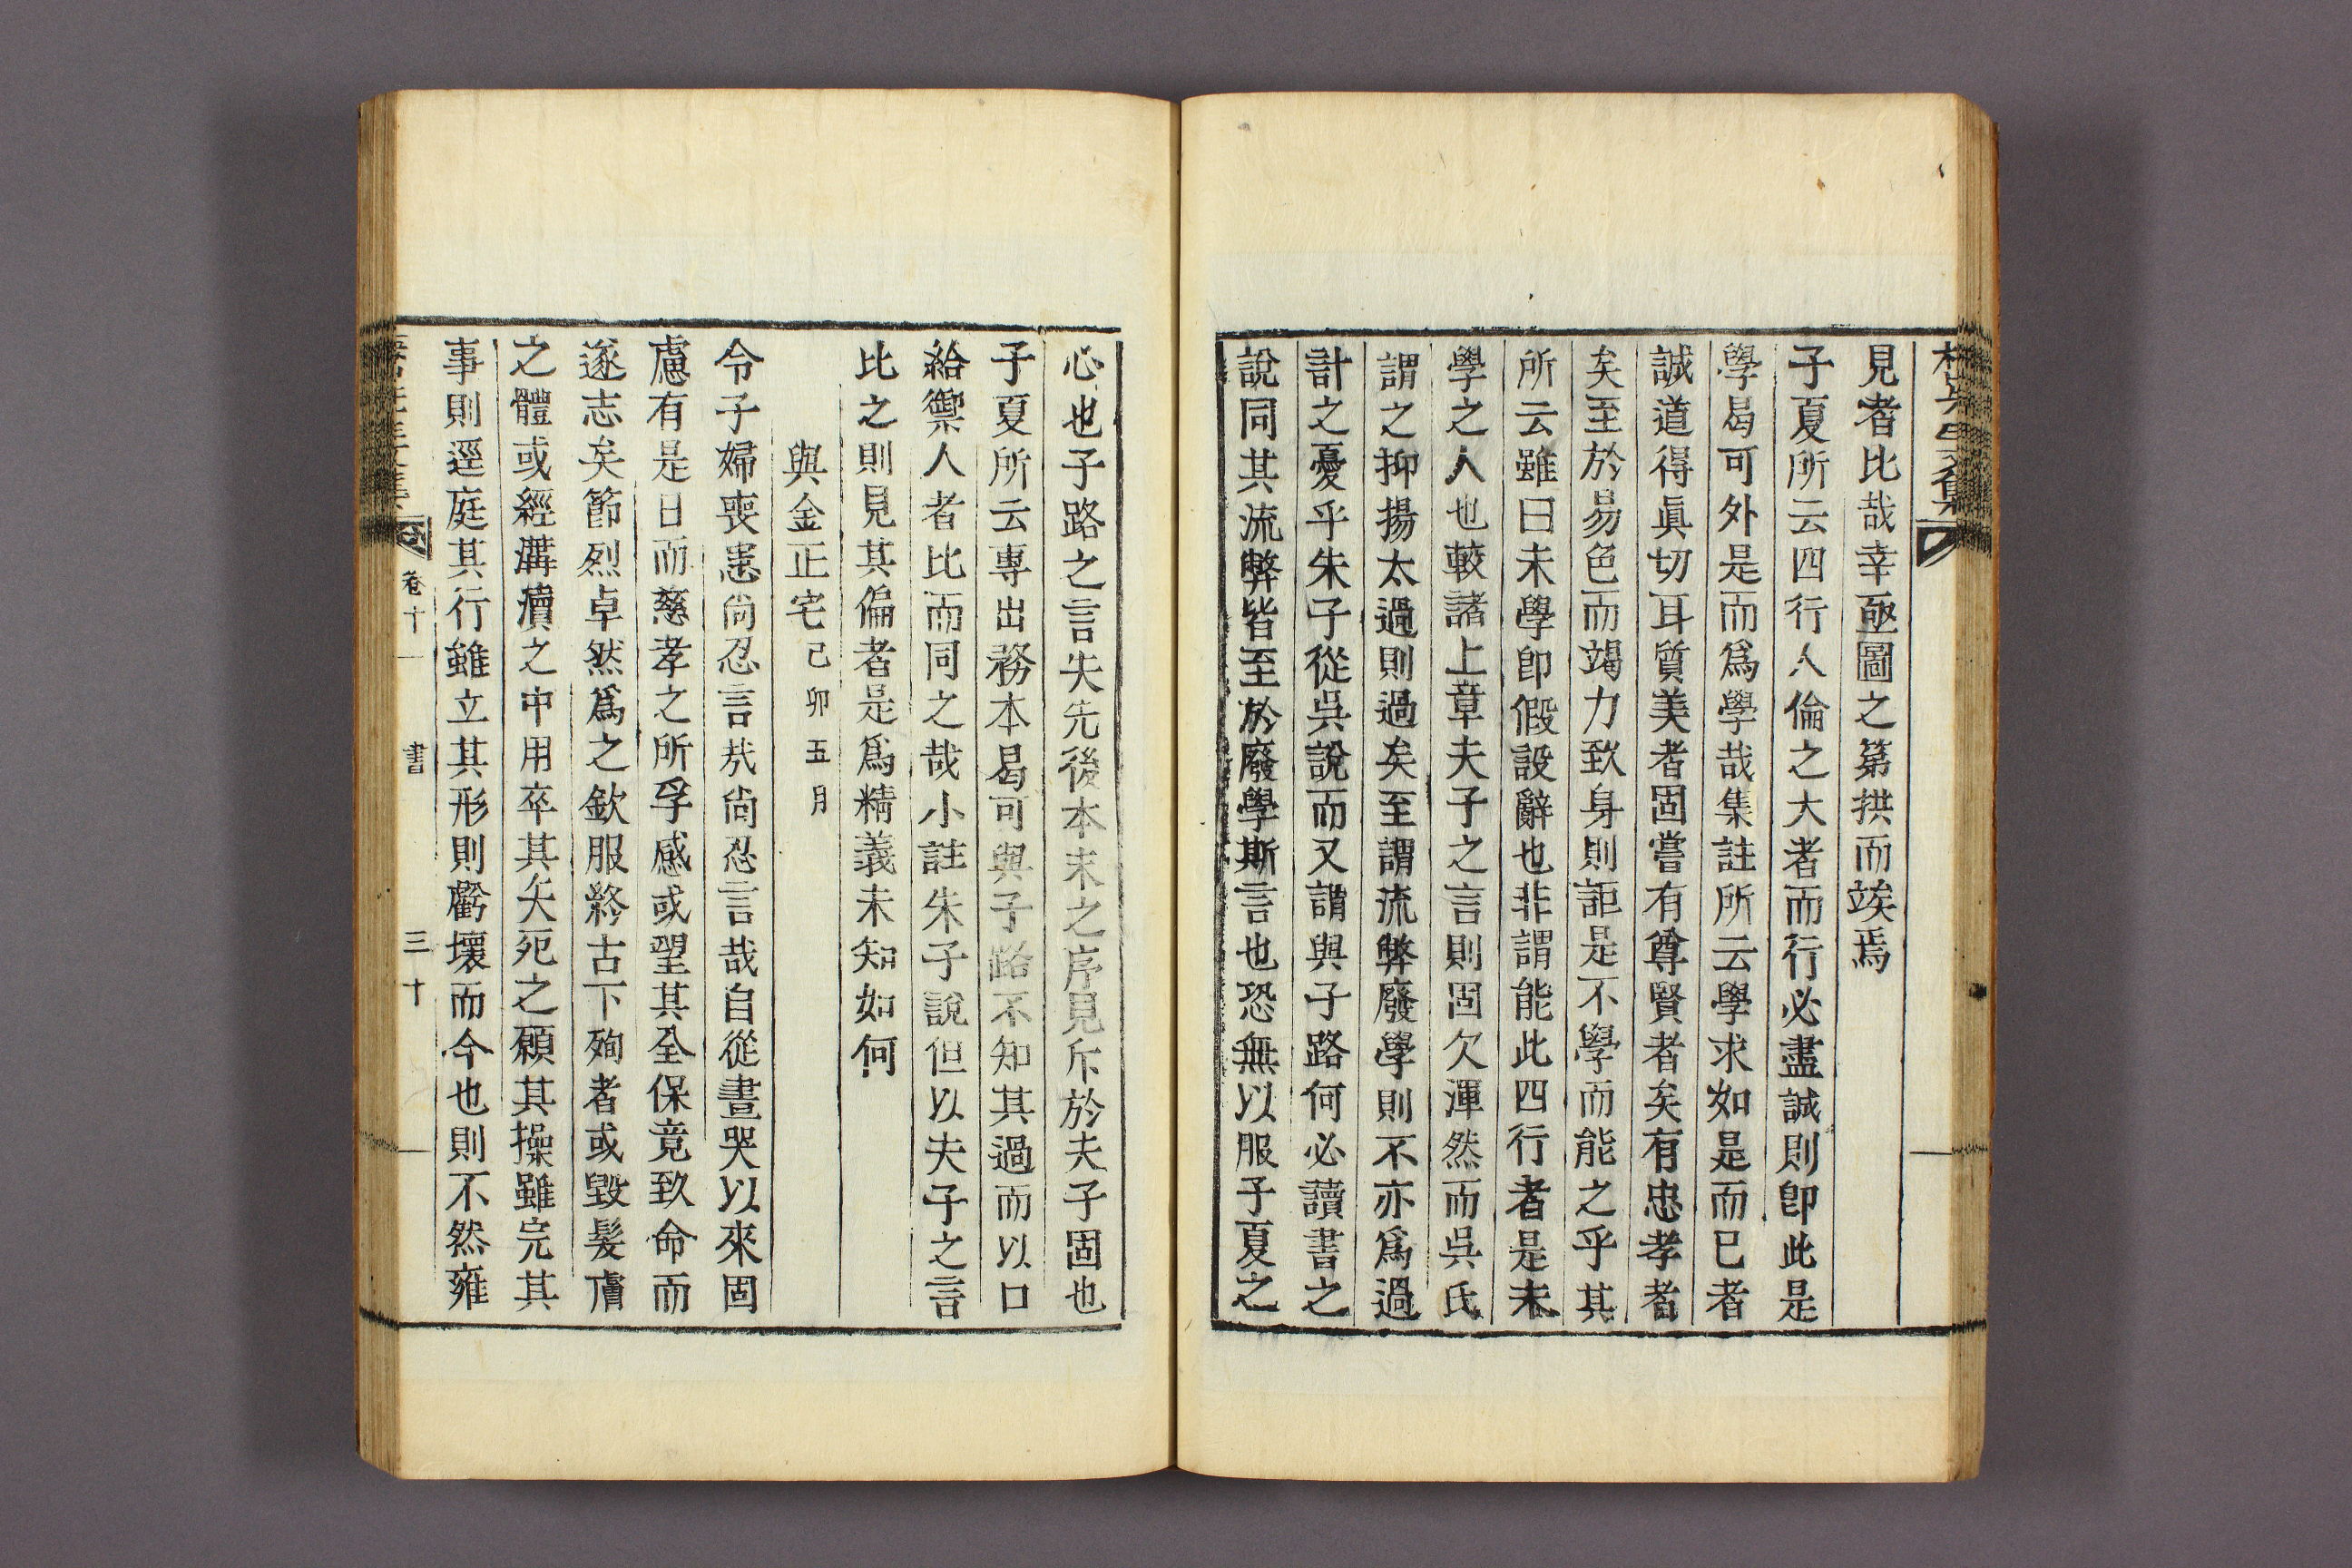 見者比哉幸亟圖之第拱而竢焉
子夏所云四行人倫之大者而行必盡誠則卽此是
學曷可外是而爲學哉集註所云學求如是而已者
誠道得眞切耳質美者固嘗有尊賢者矣有忠孝者
矣至於易色而竭力致身則詎是不學而能之乎其
所云雖曰未學卽假設辭也非謂能此四行者是未
學之人也較諸上章夫子之言則固欠渾然而吳氏
謂之抑揚太過則過矣至謂流弊廢學則不亦爲過
計之憂乎朱子從吳說而又謂與子路何必讀書之
說同其流弊皆至於廢學斯言也恐無以服子夏之
心也子路之言失先後本末之序見斥於夫子固也
子夏所云專出務本曷可與子路不知其過而以口
給禦人者比而同之哉小註朱子說但以夫子之言
比之則見其偏者是爲精義未知如何
與金正宅己卯五月
令子婦喪恚尙忍言哉尙忍言哉自從晝哭以來固
慮有是日而慈孝之所孚感或望其全保竟致命而
遂志矣節烈卓然爲之欽服終古下殉者或毀髮膚
之體或經溝瀆之中用卒其矢死之願其操雖完其
事則逕庭其行雖立其形則虧壞而今也則不然雍
卷十一 書 三十